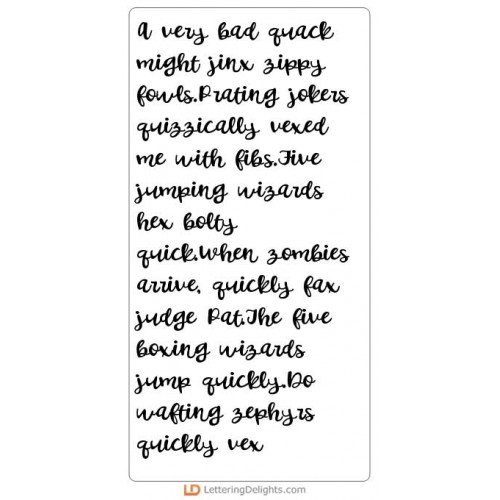 A very bad quack
might jinx zippy
fowls.Prating jokers
quizzically vexed
me with fibs.Five
jumping wizards
hex bolty
quick.When zombies
arrive, quickly fax
judge Pat.The five
boxing wizards
jump quickly.Do
wafting zephyrs
quickly vex
LD LetteringDelights.com